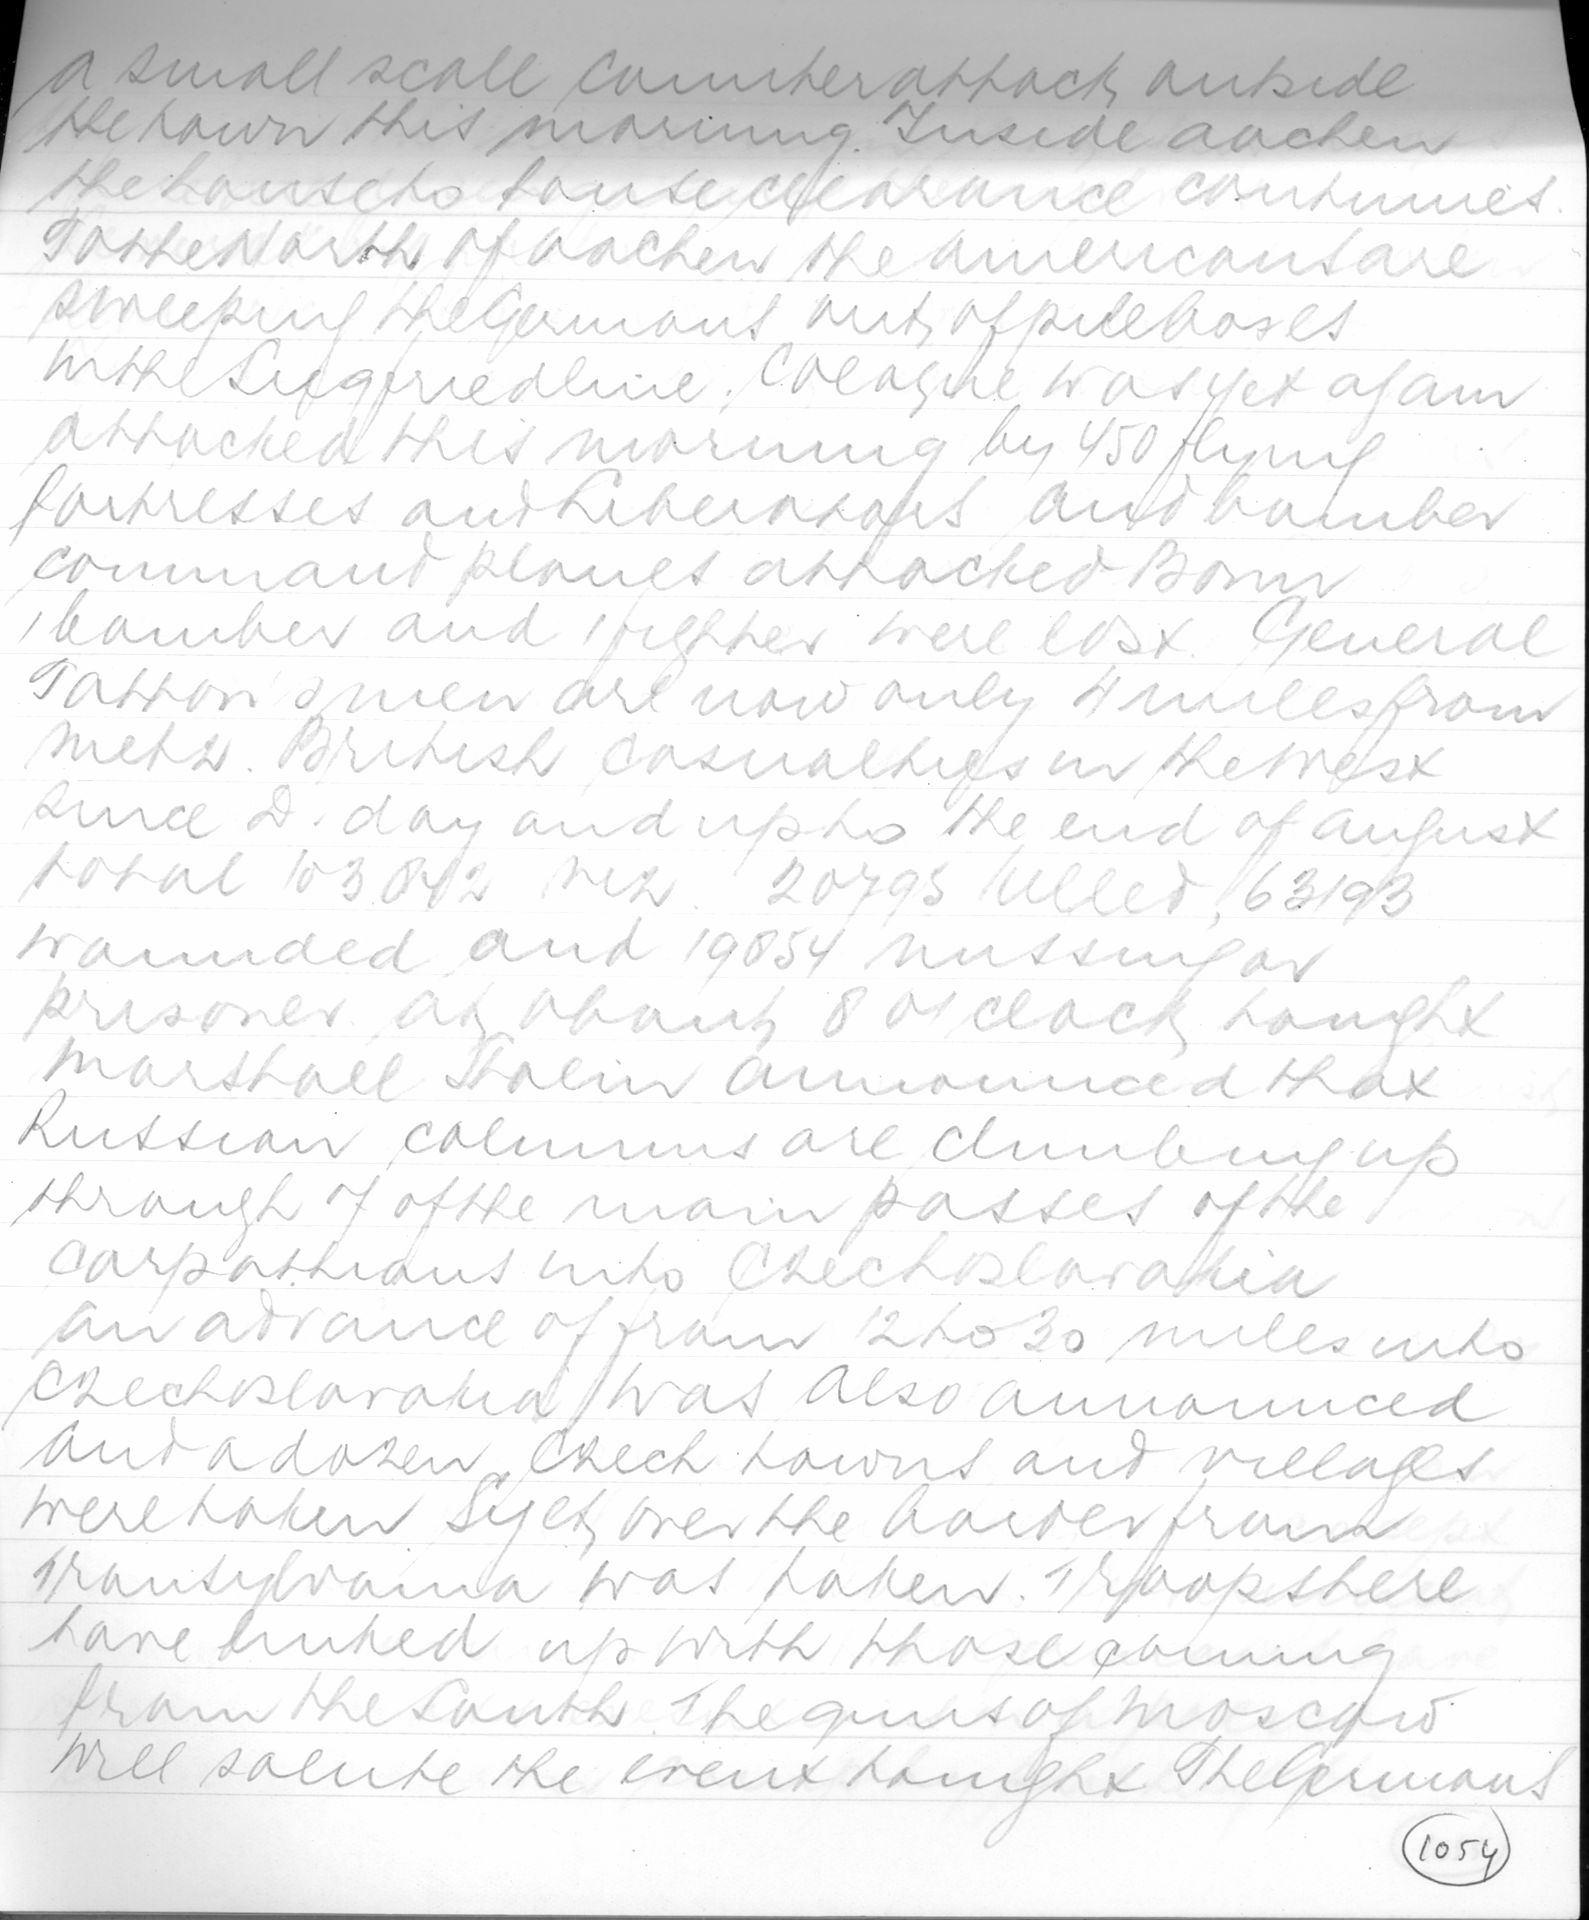 a small scale counterattack outside
the town this morning. Inside aachen
the house to house clearance continues.
To the North of aachen the americans are
sweeping the Germans out of pileboxes
in the Siegfriedline. Cologne was yet again
attacked this morning by 450 flying
fortresses and Liberators and bomber
command planes attacked Bonn
1 bomber and 1 fighter were lost. General
Patton's men are now only 4 miles from
Metz. British casualties in the west
since D. day and up to the end of august
total 103842 viz. 20795 killed, 63193
wounded and 19854 missing or
prisoner. at about 8 o'clock tonight
Marshall Stalin announced that
Russian columns are climbing up
through 7 of the main passes of the
carpathians into Czechoslovakia
an advance of from 12 to 30 miles into
Czechoslovakia was also announced
and a dozen Czech towns and villages
were taken Syet, over the border from
Transylvania was taken. Troops here
have linked up with those coming
from the South. The guns of Moscow
will salute the event tonight The Germans
1054